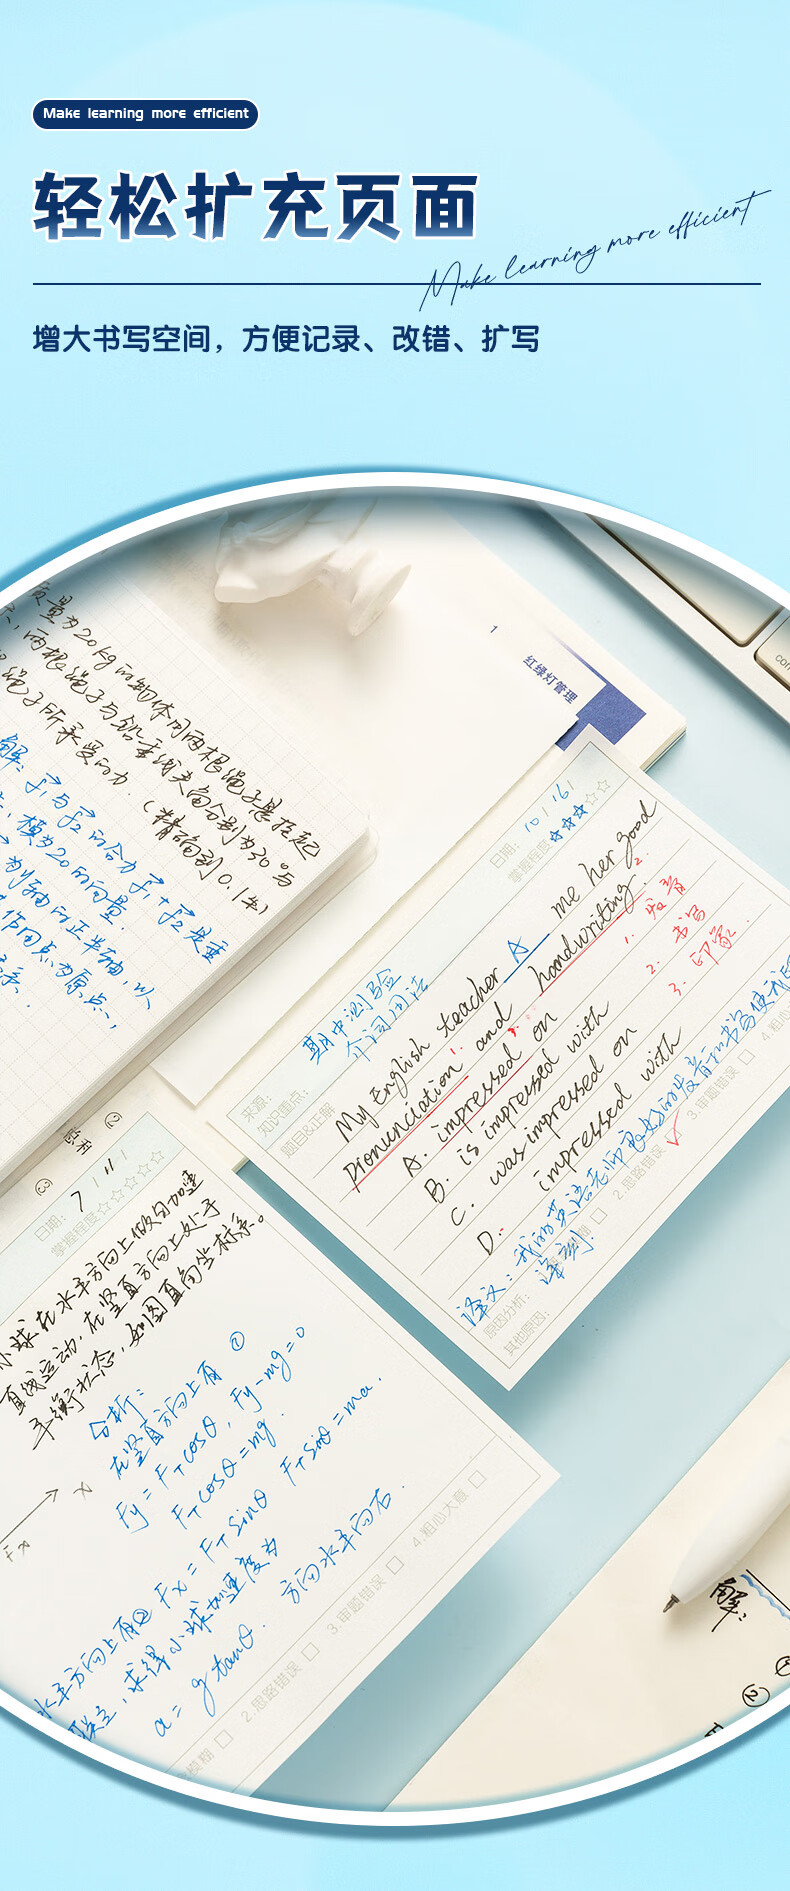 Make learning more efficient
轻松扩充页面
Make learning more efficient
增大书写空间，方便记录、改错、扩写
质量为20kg的物体用两根绳子悬挂起
两根绳子与铅垂线夹角分别为30°与
绳子所承受的力.（精确到0.1牛）
解:
的合力
是重
模为20的向量.
为y轴的正半轴, 以
作用点为原点,
1
红绿灯管理
日期: 10/16/
掌握程度☆☆☆☆☆
期中测验
介词用法
来源:
知识重点:
题目&正解
My English teacher A me her good
Pronunciation and handwriting.
A. impressed on
B. is impressed with
C. was impressed on
D. impressed with
1. 发音
2. 书写
3. 印象
译文: 我的英语老师
深刻.
2.思路错误
3.审题错误
4.粗心
原因分析:
其他原因:
②
③
日期: 7/11/
掌握程度☆☆☆☆☆
小球在水平方向上做匀加速
直线运动, 在竖直方向上处于
平衡状态, 如图直角坐标系。
x
Fx
分析: ①
在竖直方向上有
Fy = F_T cosθ, Fy-mg=0
F_T cosθ = mg.
水平方向上有② Fx = F_T sinθ F_T sinθ = ma.
求得小球加速度为
a = g tanθ. 方向水平向右.
模糊
2.思路错误
3.审题错误
4.粗心大意
解:
①
②